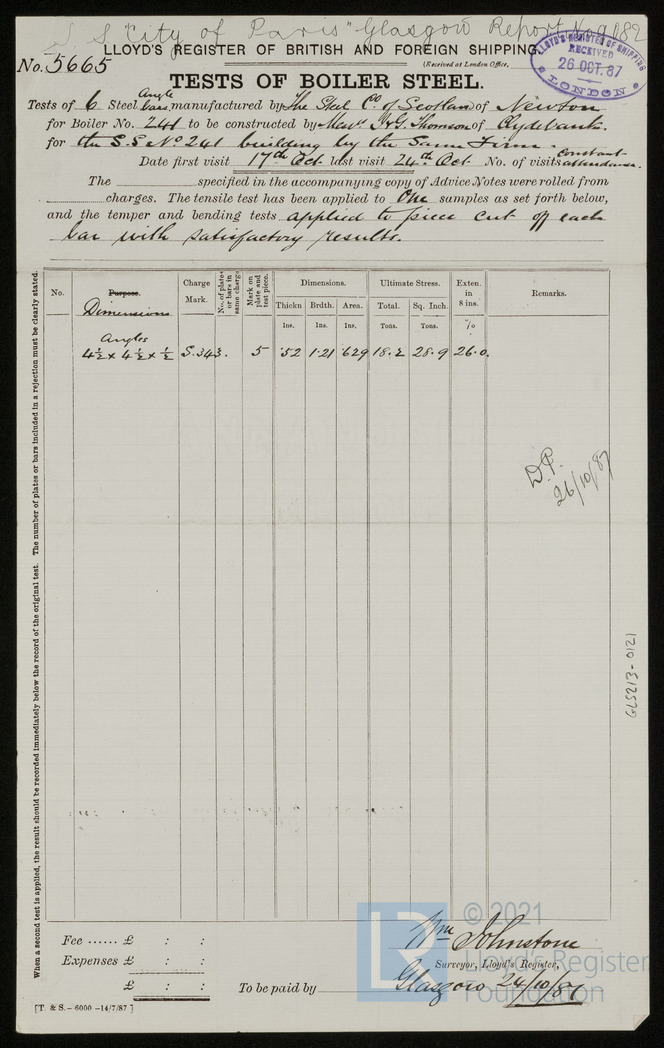 S S "City of Paris" Glasgow Report No 9882
LLOYD'S REGISTER OF BRITISH AND FOREIGN SHIPPING.
No. 5665
(Received at London Office,
LLOYD'S REGISTER OF SHIPPING
RECEIVED
26 OCT. 87
LONDON
TESTS OF BOILER STEEL.
Tests of 6 Steel Angle bars, manufactured by The Steel Co of Scotland of Newton
for Boiler No. 241 to be constructed by Messrs J & G. Thomson of Clydebank.
for the S.S No 241 building by the Same Firm.
Date first visit 17th Oct last visit 24th Oct No. of visits constant attendance.
The specified in the accompanying copy of Advice Notes were rolled from
charges. The tensile test has been applied to One samples as set forth below,
and the temper and bending tests applied to piece cut off each
bar with satisfactory results.
No. Purpose. Dimensions Charge Mark. No. of plates or bars in same charge Mark on plate and test piece. Dimensions. Ultimate Stress. Exten. in 8 ins. Remarks.
Thickn Brdth. Area. Total. Sq. Inch.
Ins. Ins. Ins. Tons. Tons. %
Angles
4½ x 4½ x ½ S.343. 5 .52 1.21 .629 18.2 28.9 26.0.
D.P.
26/10/87
GLS213-0121
When a second test is applied, the result should be recorded immediately below the record of the original test. The number of plates or bars included in a rejection must be clearly stated.
© 2021
LR
Lloyd's Register
Foundation
Fee ...... £ : :
Wm Johnstone
Expenses £ : :
Surveyor, Lloyd's Register,
£ : :
To be paid by
Glasgow 24/10/87
[T. & S.- 6000 -14/7/87 ]